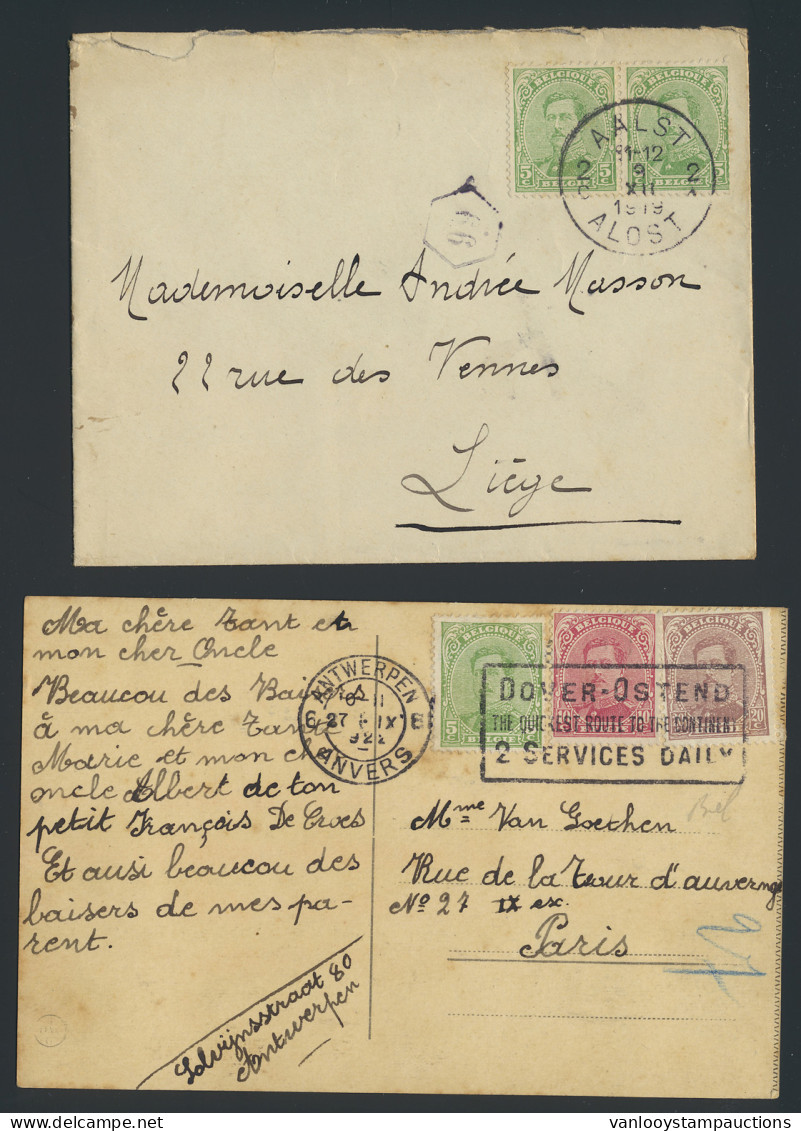 BELGIQUE BELGIQUE
5 C 5 C 5 5 C
BELGIË
AALST
11-12
2 9 2
XII
1919
ALOST
Mademoiselle Andrée Masson
22 rue des Vennes
Liége
Ma chère tant et
mon cher Oncle
Beaucou des Baisers
à ma chère Tante
Marie et mon cher
oncle Albert de ton
petit François De Croes
Et ausi beaucou des
baisers de mes pa-
rent.
Antwerpen
BELGIQUE BELGIQUE
ANTWERPEN
6-27 IX
192
ANVERS
5 C 20
DOVER-OSTEND
THE QUICKEST ROUTE TO THE CONTINENT
2 SERVICES DAILY
Bel
Mme Van Goethen
Rue de la Tour d'auvergne
No 27 IX
Paris
© Delcampe
vanlooystampauctions